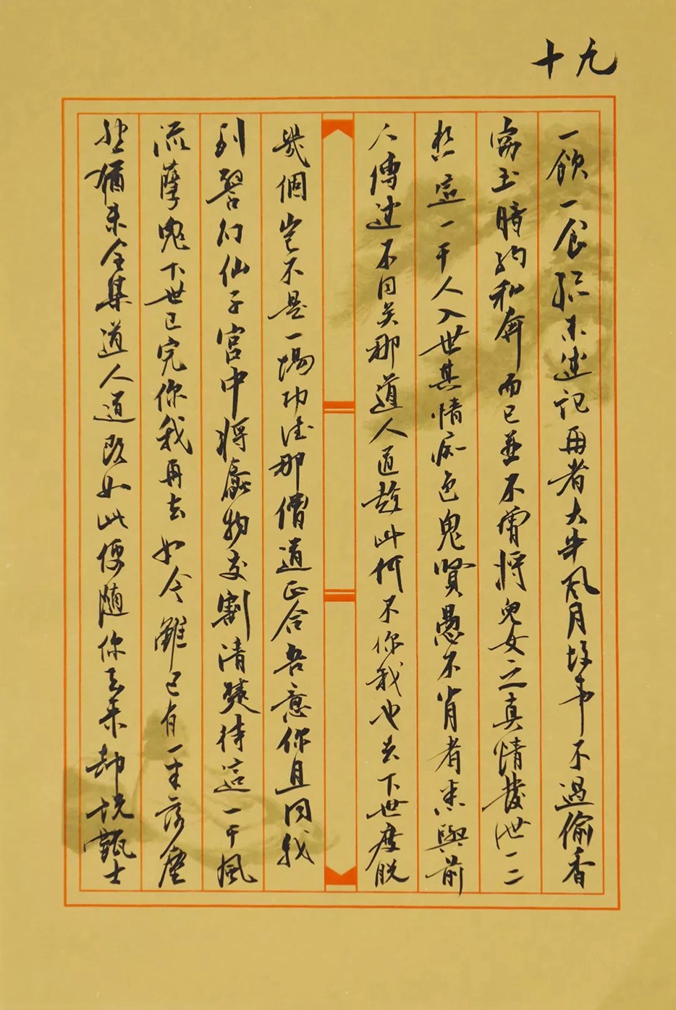 十九
一飲一食總未述記再者大半風月故事不過偷香
竊玉暗約私奔而已並不曾將兒女之真情發泄一二
想這一干人入世其情痴色鬼賢愚不肖者悉與前
人傳述不同矣那道人道趁此何不你我也去下世度脫
幾個豈不是一場功德那僧道正合吾意你且同我
到警幻仙子宮中將蠢物交割清楚待這一干風
流孽鬼下世已完你我再去如今雖已有一半落塵
然猶未全集道人道既如此便隨你去來卻說甄士